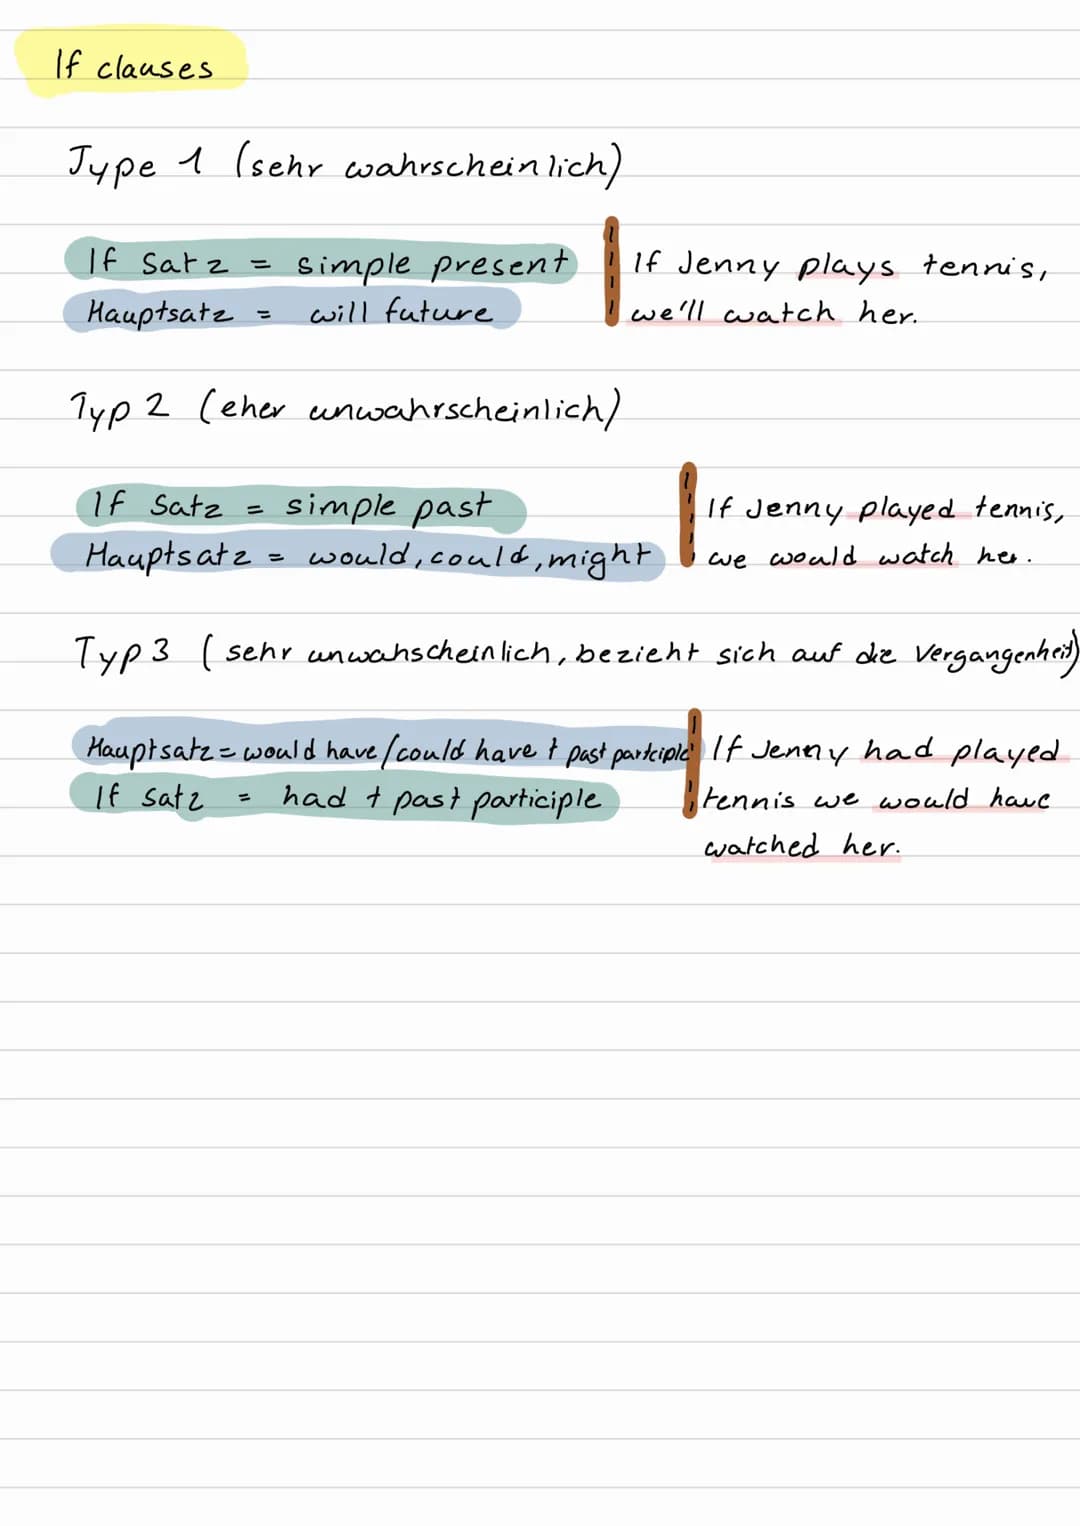 If clauses
Type 1 (sehr wahrscheinlich)
If Satz = simple present
Hauptsatz = will future
If Jenny plays tennis,
we'll watch her.
Typ 2 (eher unwahrscheinlich)
If Satz = simple past
Hauptsatz = would, could, might
If Jenny played tennis,
we would watch her.
Typ 3 (sehr unwahscheinlich, bezieht sich auf die Vergangenheit)
Hauptsatz = would have/could have + past participle
If Satz = had + past participle
If Jenny had played
tennis we would have
watched her.